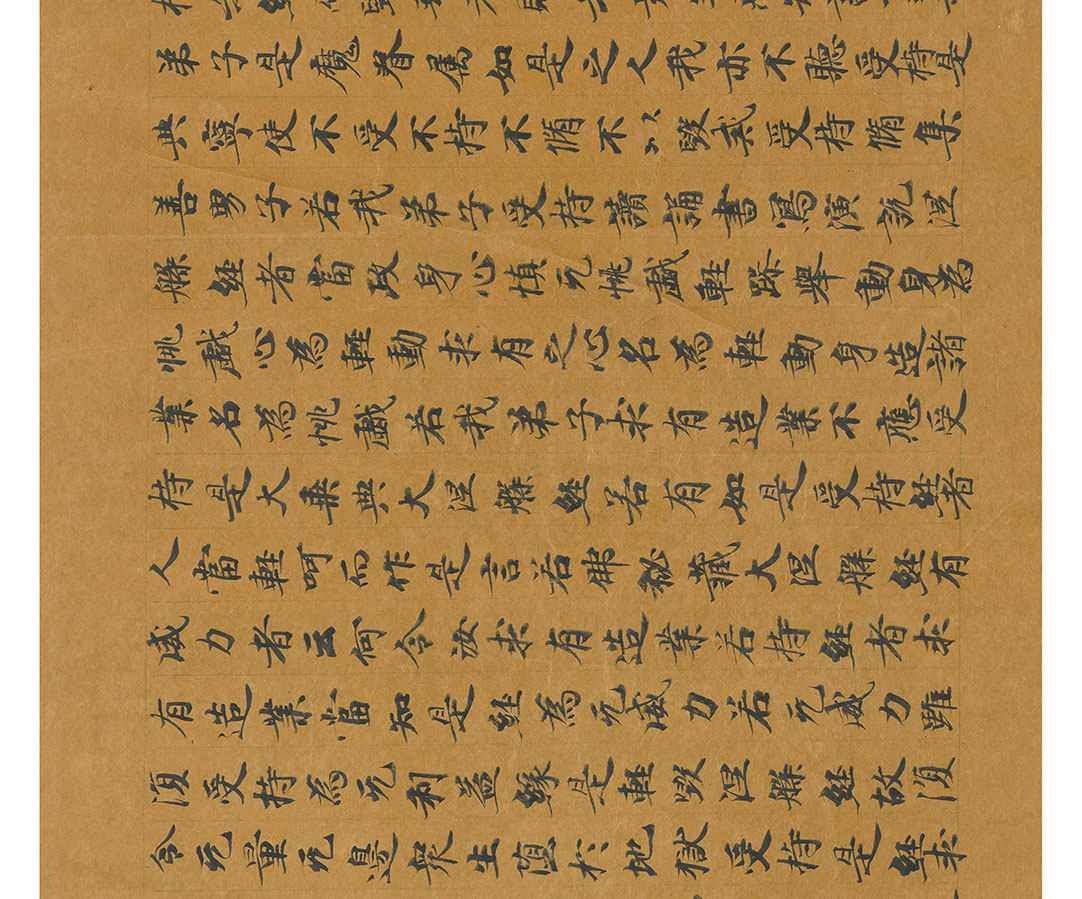 弟子是魔眷属如是之人我亦不聽受持是
典寧使不受不持不脩不以毀戒受持脩集
善男子若我弟子受持讀誦書寫演說涅
槃經者當政身心慎无恌戲輕踈舉動身為
恌戲心為輕動求有之心名為輕動身造諸
業名為恌戲若我弟子求有造業不應受
持是大乘典大涅槃經若有如是受持經者
人當輕呵而作是言若佛祕藏大涅槃經有
威力者云何令汝求有造業若持經者求
有造業當知是經為无威力若无威力雖
復受持為无利益緣是輕毀涅槃經故復
令无量无邊衆生墮於地獄受持是經求